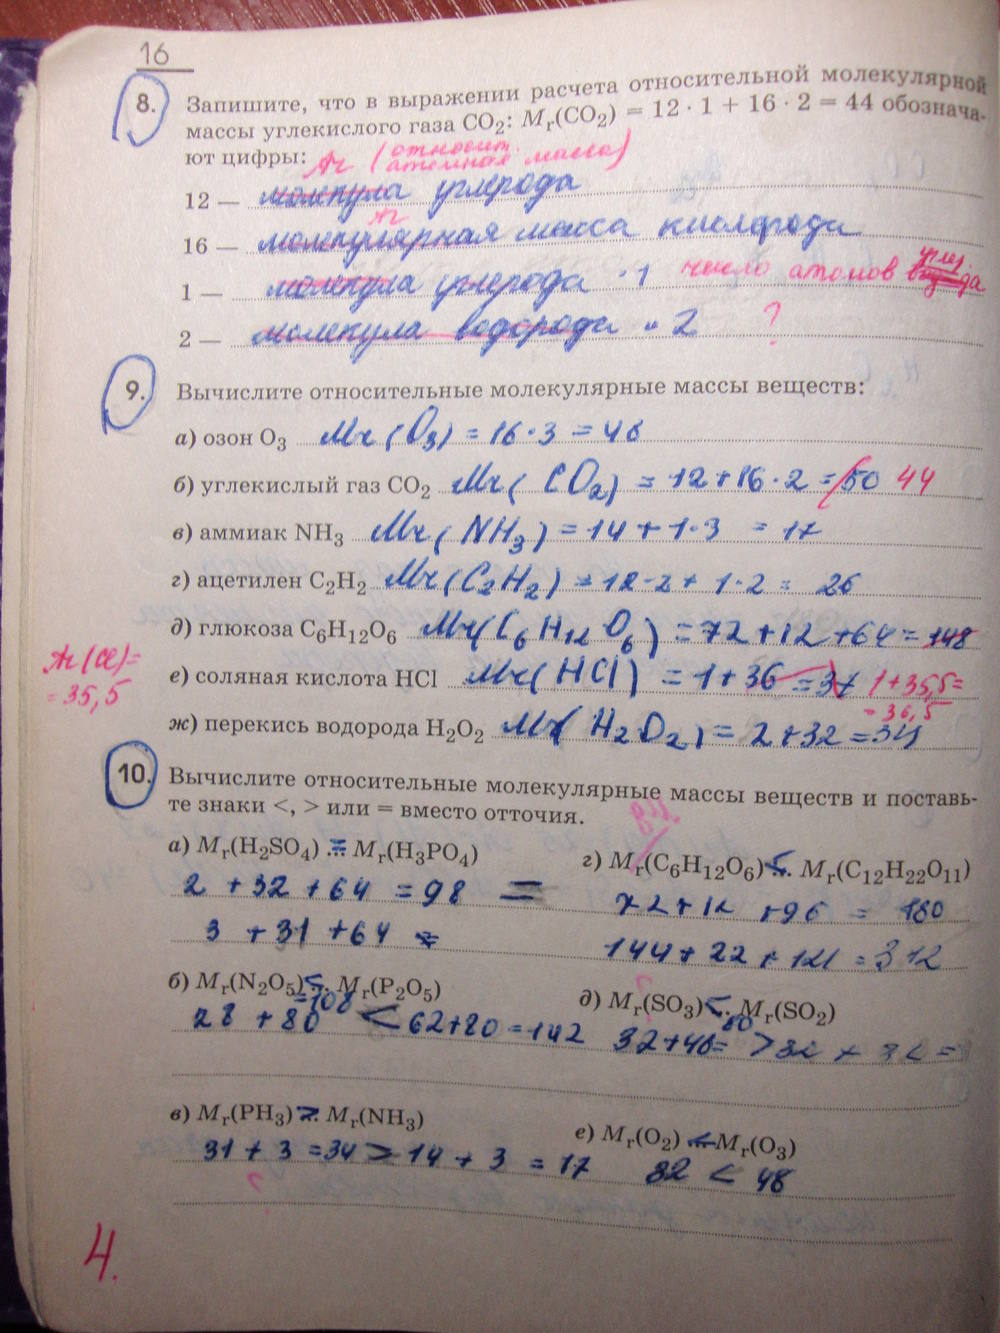 16
8. Запишите, что в выражении расчета относительной молекулярной
массы углекислого газа CO₂: Mr(CO₂) = 12 · 1 + 16 · 2 = 44 обознача-
ют цифры: Ar (относит. атомная масса)
12 — молекула углерода
Ar
16 — молекулярная масса кислорода
1 — молекула углерода · 1 число атомов углер.
2 — молекула водорода · 2 ?
9. Вычислите относительные молекулярные массы веществ:
а) озон O₃ Mr(O₃) = 16·3 = 48
б) углекислый газ CO₂ Mr(CO₂) = 12+16·2 = 50 44
в) аммиак NH₃ Mr(NH₃) = 14+1·3 = 17
г) ацетилен C₂H₂ Mr(C₂H₂) = 12·2+1·2 = 26
д) глюкоза C₆H₁₂O₆ Mr(C₆H₁₂O₆) = 72+12+64 = 148
Ar(Cl)=
= 35,5
е) соляная кислота HCl Mr(HCl) = 1+36 = 37 1+35,5=
= 36,5
ж) перекись водорода H₂O₂ Mr(H₂O₂) = 2+32 = 34
10. Вычислите относительные молекулярные массы веществ и поставь-
те знаки <, > или = вместо отточия.
а) Mr(H₂SO₄) = Mr(H₃PO₄)
2 + 32 + 64 = 98 =
3 + 31 + 64 =
г) Mr(C₆H₁₂O₆) < Mr(C₁₂H₂₂O₁₁)
72+12 +96 = 180
144+22+121 = 312
б) Mr(N₂O₅) < Mr(P₂O₅)
28 + 80 =108 < 62+80 = 142
д) Mr(SO₃) < Mr(SO₂)
32+48= 80 > 32 + 32 =
в) Mr(PH₃) > Mr(NH₃)
31 + 3 = 34 > 14 + 3 = 17
?
е) Mr(O₂) < Mr(O₃)
32 < 48
4.